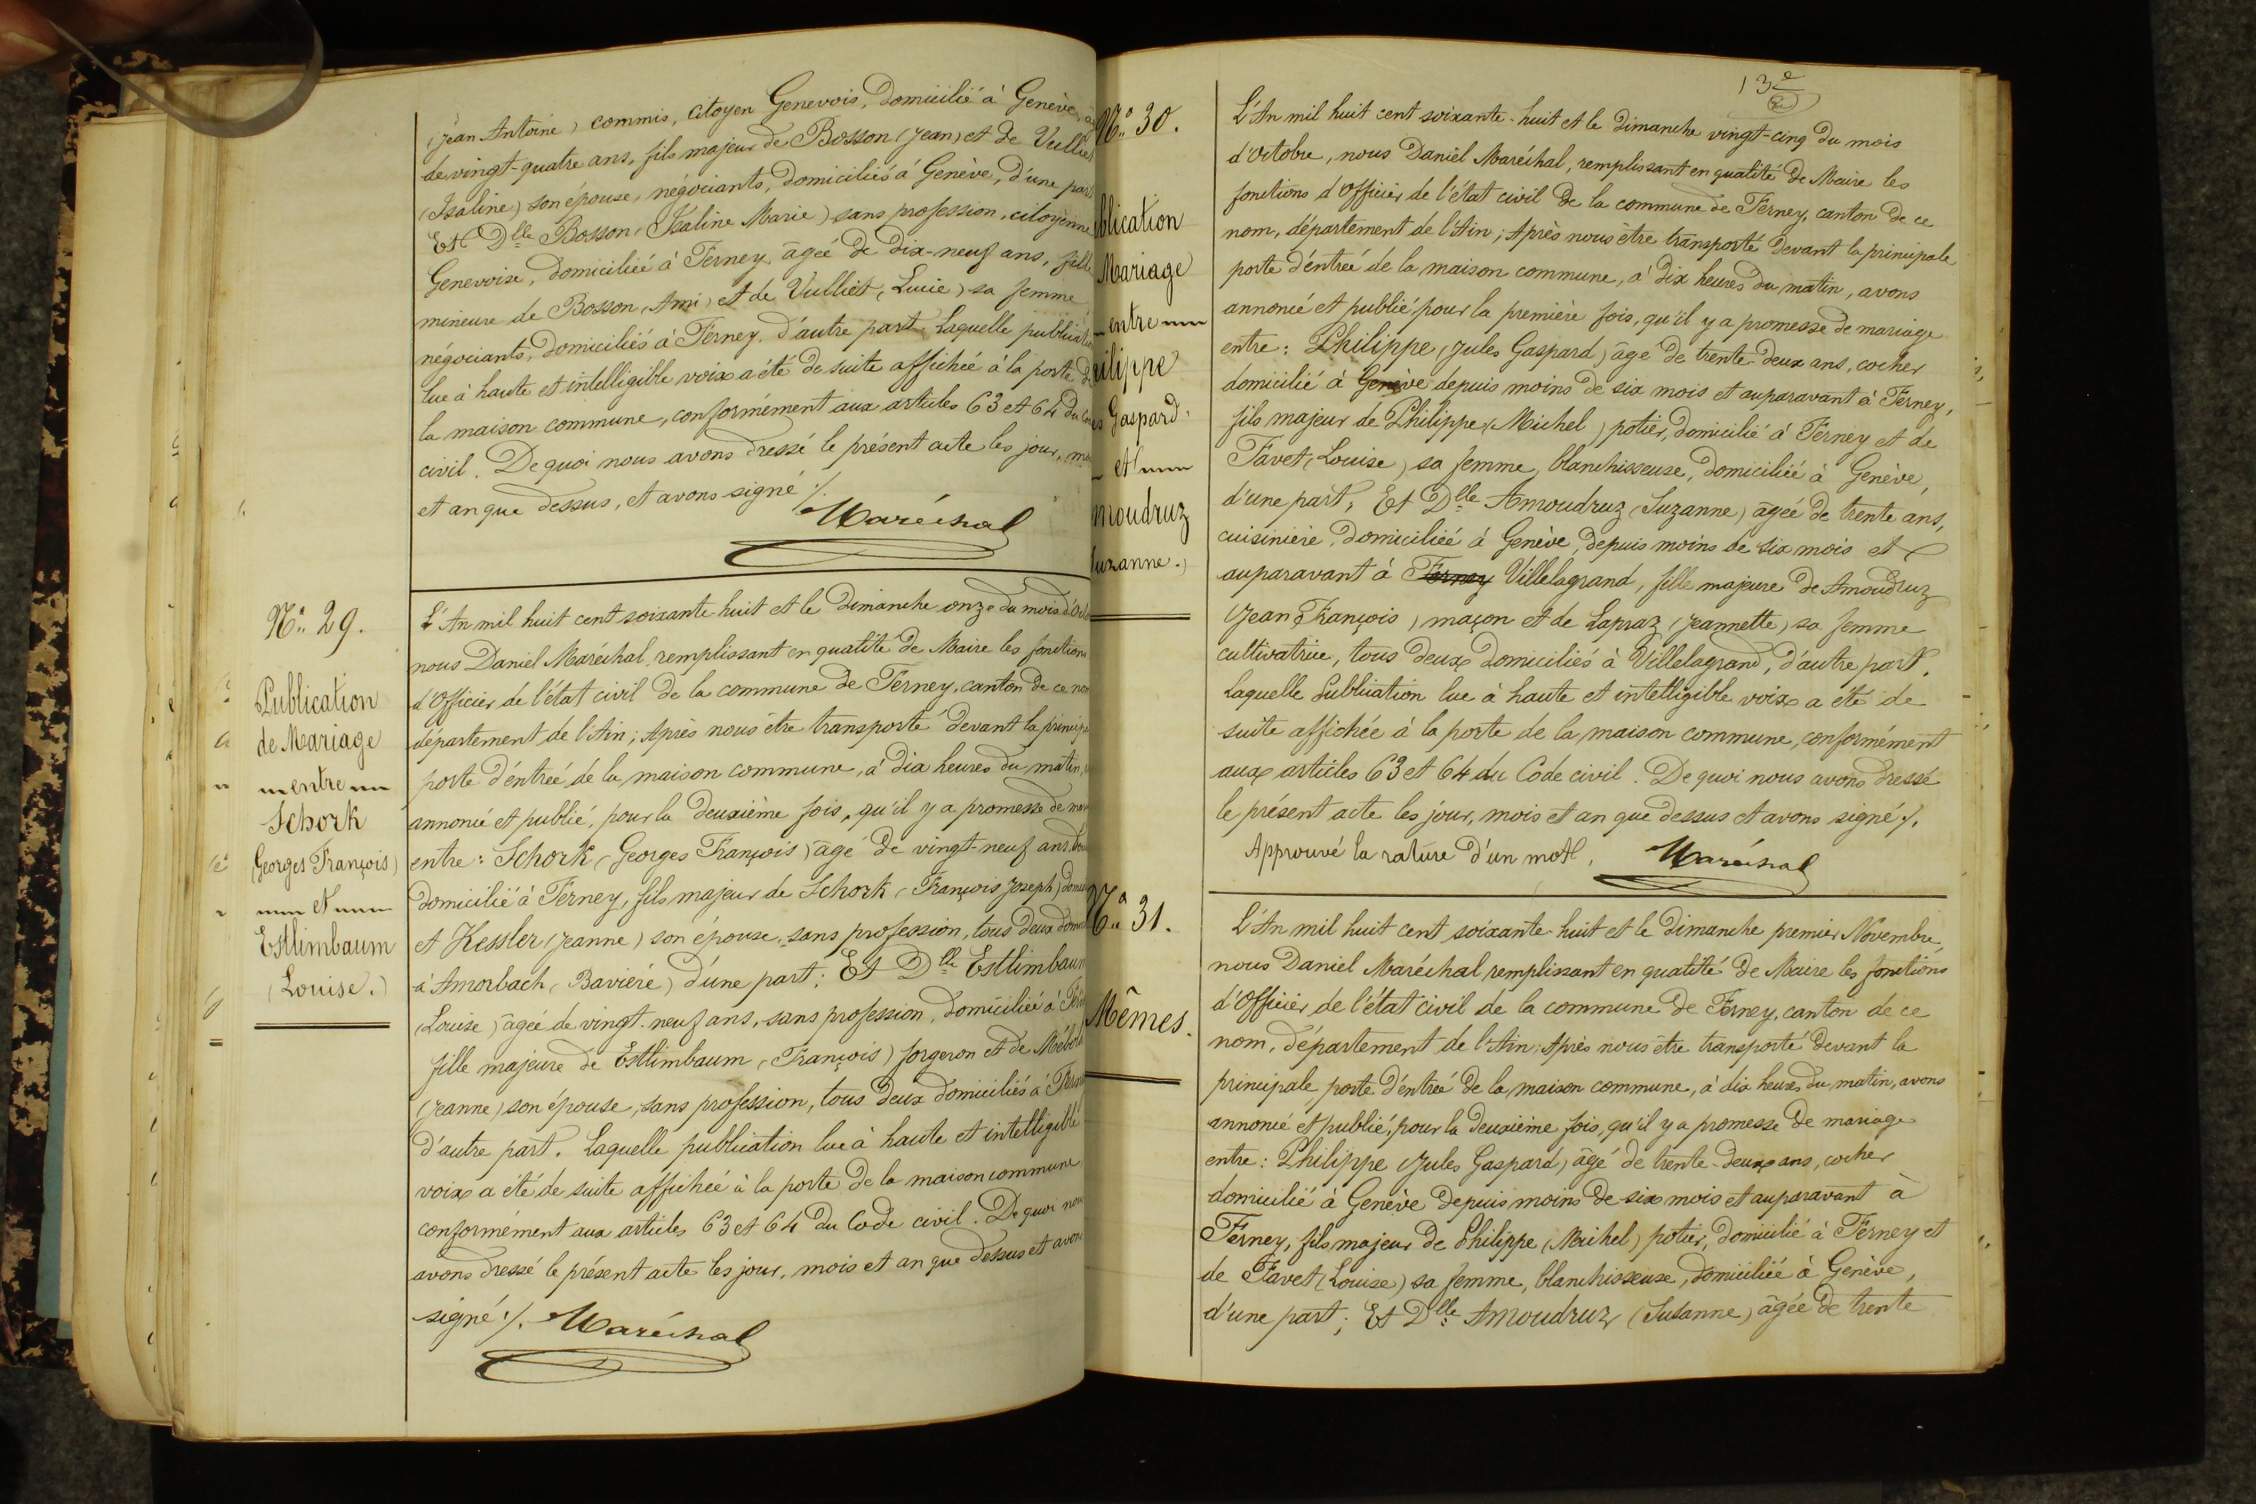 (Jean Antoine) commis, citoyen Genevois, domicilié à Genève,
de vingt-quatre ans, fils majeur de Bosson (Jean) et de Vulliet
(Isaline) son épouse, négociants, domiciliés à Genève, d'une part
Et Dlle Bosson (Isaline Marie) sans profession, citoyenne
Genevoise, domiciliée à Ferney, âgée de dix-neuf ans, fille
mineure de Bosson (Ami) et de Vulliet (Lucie) sa femme
négociants, domiciliés à Ferney, d'autre part. Laquelle publication
lue à haute et intelligible voix a été de suite affichée à la porte de
la maison commune, conformément aux articles 63 et 64 du Code
civil. De quoi nous avons dressé le présent acte les jour, mois
et an que dessus, et avons signé ./.
Maréchal
No. 29.
Publication
de Mariage
entre
Schork
(Georges François)
et
Estlimbaum
(Louise.)
L'An mil huit cent soixante huit et le dimanche onze du mois d'Oct
nous Daniel Maréchal, remplissant en qualité de Maire les fonctions
d'Officier de l'état civil de la commune de Ferney, canton de ce nom
département de l'Ain; Après nous être transporté devant la principa
porte d'entrée de la maison commune, à dix heures du matin,
annoncé et publié, pour la deuxième fois, qu'il y a promesse de mar
entre: Schork (Georges François) âgé de vingt-neuf ans,
domicilié à Ferney, fils majeur de Schork (François Joseph)
et Kessler (Jeanne) son épouse, sans profession, tous deux domi
à Amorbach (Bavière) d'une part; Et Dlle Estlimbaum
(Louise) âgée de vingt-neuf ans, sans profession, domiciliée à
fille majeure de Estlimbaum (François) forgeron et de
(Jeanne) son épouse, sans profession, tous deux domiciliés à
d'autre part. Laquelle publication lue à haute et intelligible
voix a été de suite affichée à la porte de la maison commune
conformément aux articles 63 et 64 du Code civil. De quoi nous
avons dressé le présent acte les jour, mois et an que dessus et avons
signé ./. Maréchal
13e
No. 30.
blication
Mariage
entre
ilippe
es Gaspard.
et
moudruz
uzanne.)
L'An mil huit cent soixante-huit et le dimanche vingt-cinq du mois
d'Octobre, nous Daniel Maréchal, remplissant en qualité de Maire les
fonctions d'Officier de l'état civil de la commune de Ferney, canton de ce
nom, département de l'Ain; Après nous être transporté devant la principale
porte d'entrée de la maison commune, à dix heures du matin, avons
annoncé et publié pour la première fois, qu'il y a promesse de mariage
entre: Philippe (Jules Gaspard) âgé de trente-deux ans, cocher
domicilié à Genève depuis moins de six mois et auparavant à Ferney,
fils majeur de Philippe (Michel) potier, domicilié à Ferney et de
Favet (Louise) sa femme, blanchisseuse, domiciliée à Genève,
d'une part, Et Dlle Amoudruz (Suzanne) âgée de trente ans,
cuisinière, domiciliée à Genève, depuis moins de six mois et
auparavant à Ferney Villelagrand, fille majeure de Amoudruz
(Jean François) maçon et de Lapraz (Jeannette) sa femme
cultivatrice, tous deux domiciliés à Villelagrand, d'autre part.
Laquelle Publication lue à haute et intelligible voix a été de
suite affichée à la porte de la maison commune, conformément
aux articles 63 et 64 du Code civil. De quoi nous avons dressé
le présent acte les jour, mois et an que dessus et avons signé ./.
Approuvé la rature d'un mot. Maréchal
No. 31.
Mêmes.
L'An mil huit cent soixante-huit et le dimanche premier Novembre,
nous Daniel Maréchal remplissant en qualité de Maire les fonctions
d'Officier de l'état civil de la commune de Ferney, canton de ce
nom, département de l'Ain; Après nous être transporté devant la
principale porte d'entrée de la maison commune, à dix heures du matin, avons
annoncé et publié, pour la deuxième fois, qu'il y a promesse de mariage
entre: Philippe (Jules Gaspard) âgé de trente-deux ans, cocher
domicilié à Genève depuis moins de six mois et auparavant à
Ferney, fils majeur de Philippe (Michel) potier, domicilié à Ferney et
de Favet (Louise) sa femme, blanchisseuse, domiciliée à Genève,
d'une part; Et Dlle Amoudruz (Susanne) âgée de trente